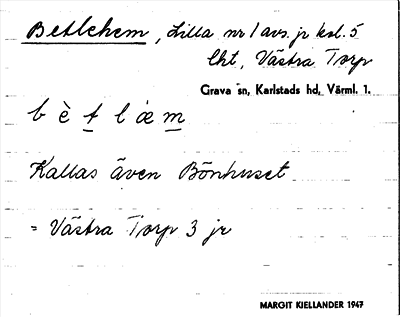 Betlehem, Lilla nr 1 avs. jr ksl. 5
lht, Västra Torp
Grava sn, Karlstads hd, Värml. 1.
b è t l œ m
Kallas även Bönhuset
= Västra Torp 3 jr
MARGIT KIELLANDER 1947